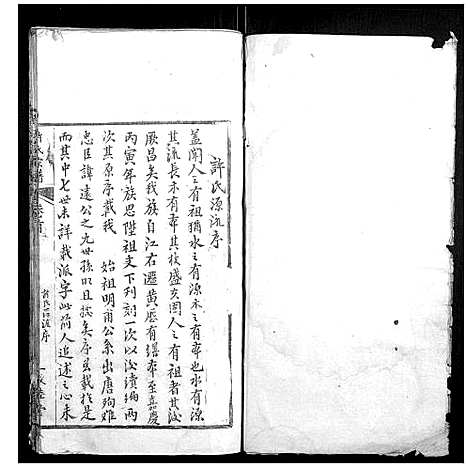 許氏源流序
蓋聞人之有祖猶水之有源木之有本也水有源
其流長木有本其枝盛亥固人之有祖者其後
厥昌矣我族自江右遷黃歷有繕本至嘉慶
丙寅年族思陞祖文下列刻一次以後續編兩
次其原序載我 始祖明甫公系出唐殉難
忠臣諱遠公之九世孫明且핞矣序虽載於是
而其中七世未詳載派字此前人追述之心未
許氏源流序